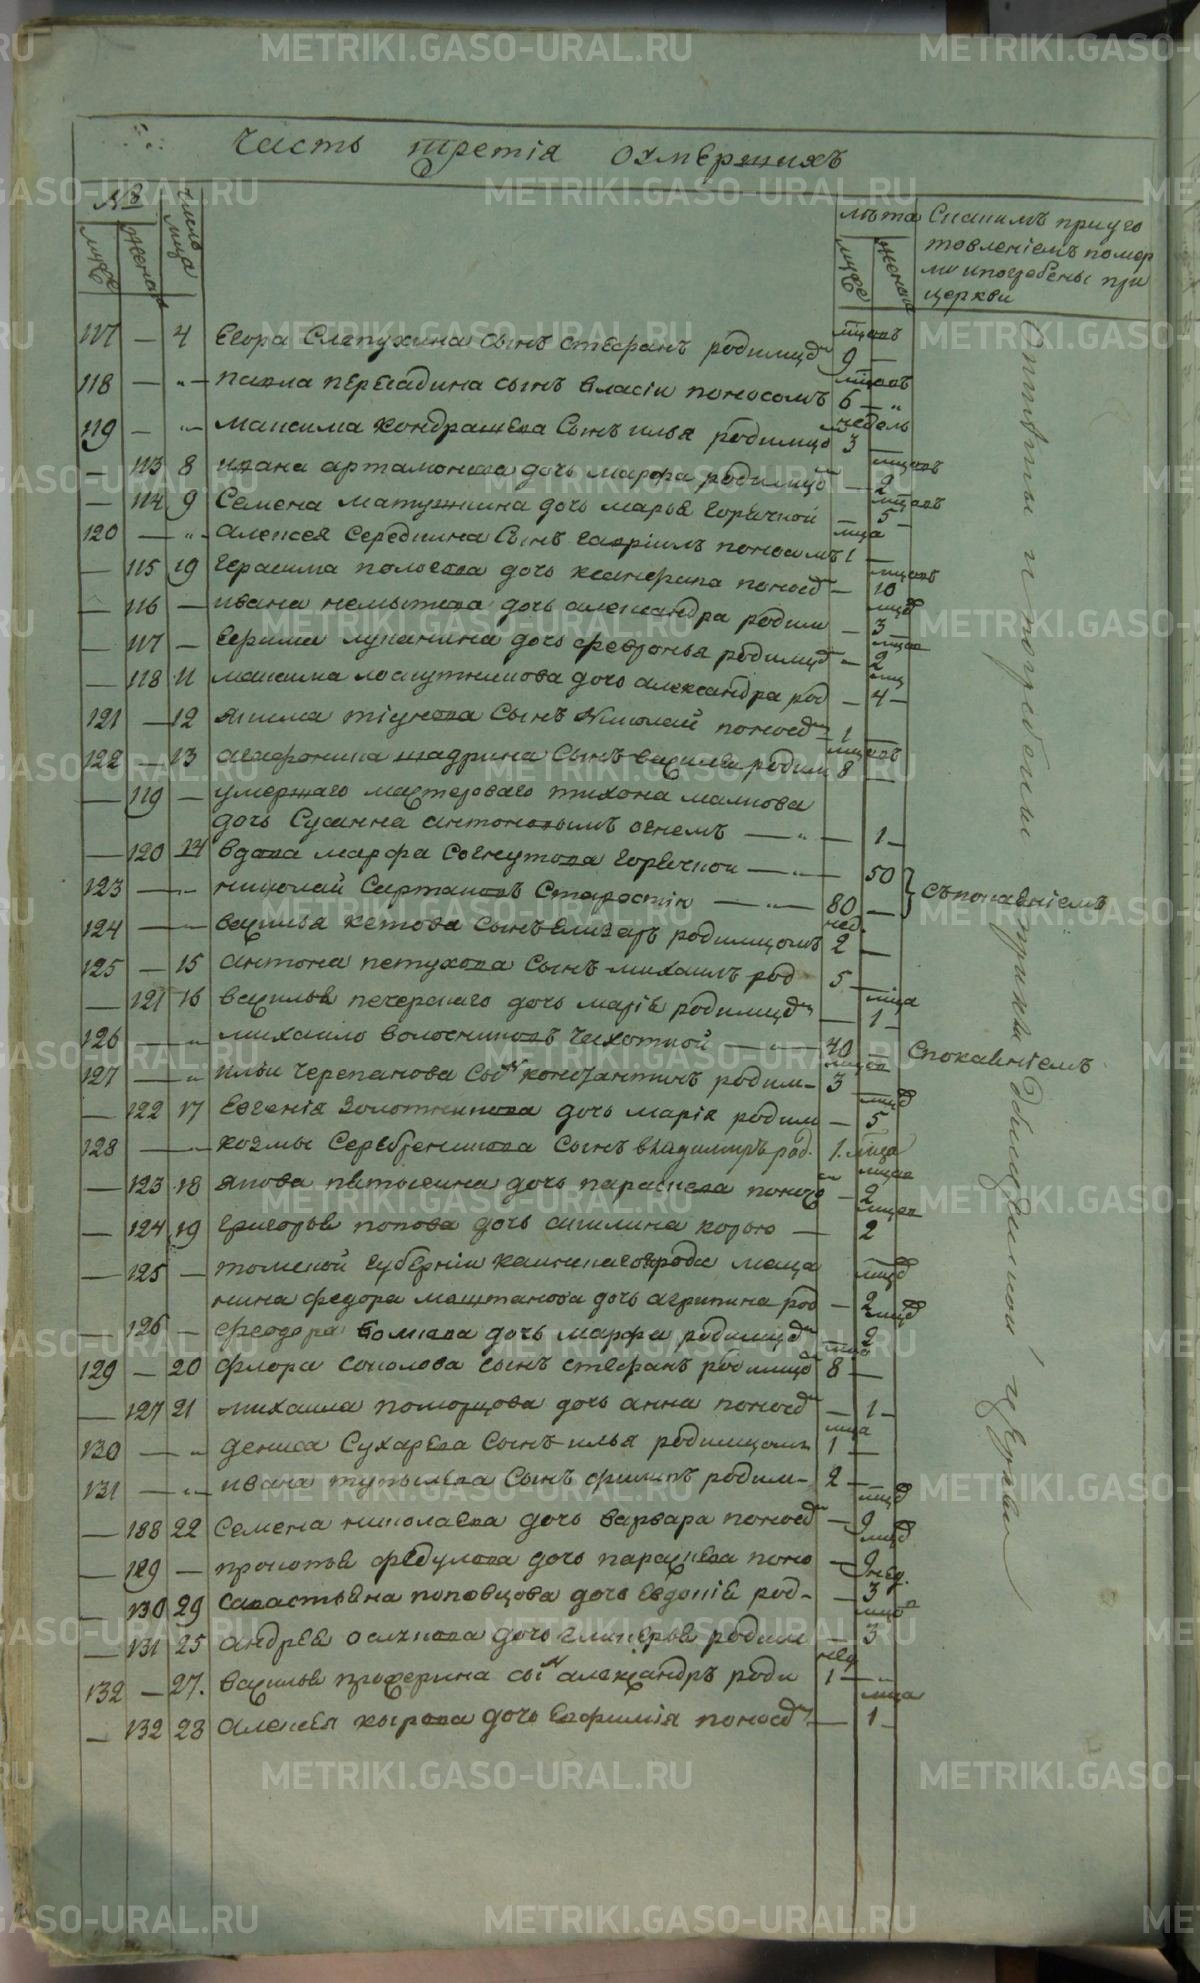 Часть третія оумершихъ
№
число лица
мужс женск
лѣта
мужс женск
Съ какимъ приуго
товленіемъ помер
ли и погребены при
церкви
117 — 4 Егора Слепухина сынъ Стефанъ родимцом 9 — мцовъ
118 — „ — Павла Переладина сынъ Власіи поносомъ 6 — „ мцовъ
119 — „ — Максима Кондрашева сынъ Илья родимцо 3 — недель
— 113 8 Ивана Артамонова дочь Марфа родимцо — 2 мцовъ
— 114 9 Семена дочь Марья горячкой — 5 — мцовъ
120 — „ — Алексея Середкина сынъ Гавріилъ поносомъ 1 — мца
— 115 19 Герасима дочь поносо — 10 мцовъ
— 116 — Ивана дочь Александра родим — 3 мцо
— 117 — Ефима Лупанина дочь Февронья родимцо — 2 мцов
— 118 11 Максима дочь Александра род — 4 — мц
121 — 12 Якима Тіунова сынъ Николай поносо 1 —
122 — 13 Агафонина Шадрина сынъ Василей родим 8 — мцовъ
— 119 — умершаго мастероваго Тихона Малкова
дочь Сусанна антоновымъ огнемъ — „ — 1 —
— 120 14 вдова Марфа горячкои — „ — 50
съ покаяніемъ
123 — „ — Николай Сартаковъ старостію — „ — 80 —
124 — „ Василья Кетова сынъ Елизаръ родимцомъ 2 — нед.
125 — 15 Антона Петухова сынъ Михаилъ род 5 —
— 121 16 Василья Печерскаго дочь Маріе родимцо — 1 — мца
126 — „ Михаило Волосниковъ чехоткой — „ — 40 — спокаяніемъ
127 — „ Ильи Черепанова сынъ Константинъ родим — 3 — мцев
— 122 17 Евгенія Золотникова дочь Марія родим — 5 мцо
128 — „ Козмы Серебреникова сынъ Владимиръ род. 1. мца
— 123 18 Якова дочь Параскева поносо — 2 мцов
— 124 19 Григорья Попова дочь Акилина корью — 2 мцов
— 125 — Томской губерніи города меща
нина Федора Маштакова дочь Агрипина род — 2 мцо
— 126 — Феодора дочь Марфа родимцо — 2 мцо
129 — 20 Флора Соколова сынъ Стефанъ родимцо 8 —
— 127 21 Михаила Поморцова дочь Анна поносо — 1 —
130 — „ Дениса Сухарева сынъ Илья родимцомъ 1 — мца
131 — „ Ивана сынъ Филипъ родим — 2 —
— 188 22 Семена Николаева дочь Варвара поносо — 9 мцо
— 129 — Прокопья Федулова дочь Параскева поно — 9 мцо
— 130 29 Савастьяна Поповцова дочь Евдокіе род — 3 нед.
— 131 25 Андрея дочь Гликерья родим — 3
132 — 27. Василья Проферина сынъ Александръ роди 1 — „ нед
— 132 28 Алексея дочь Евфимія поносо — 1 — мца
Отпѣты и погребены при Единоверческой церкви
METRIKI.GASO-URAL.RU